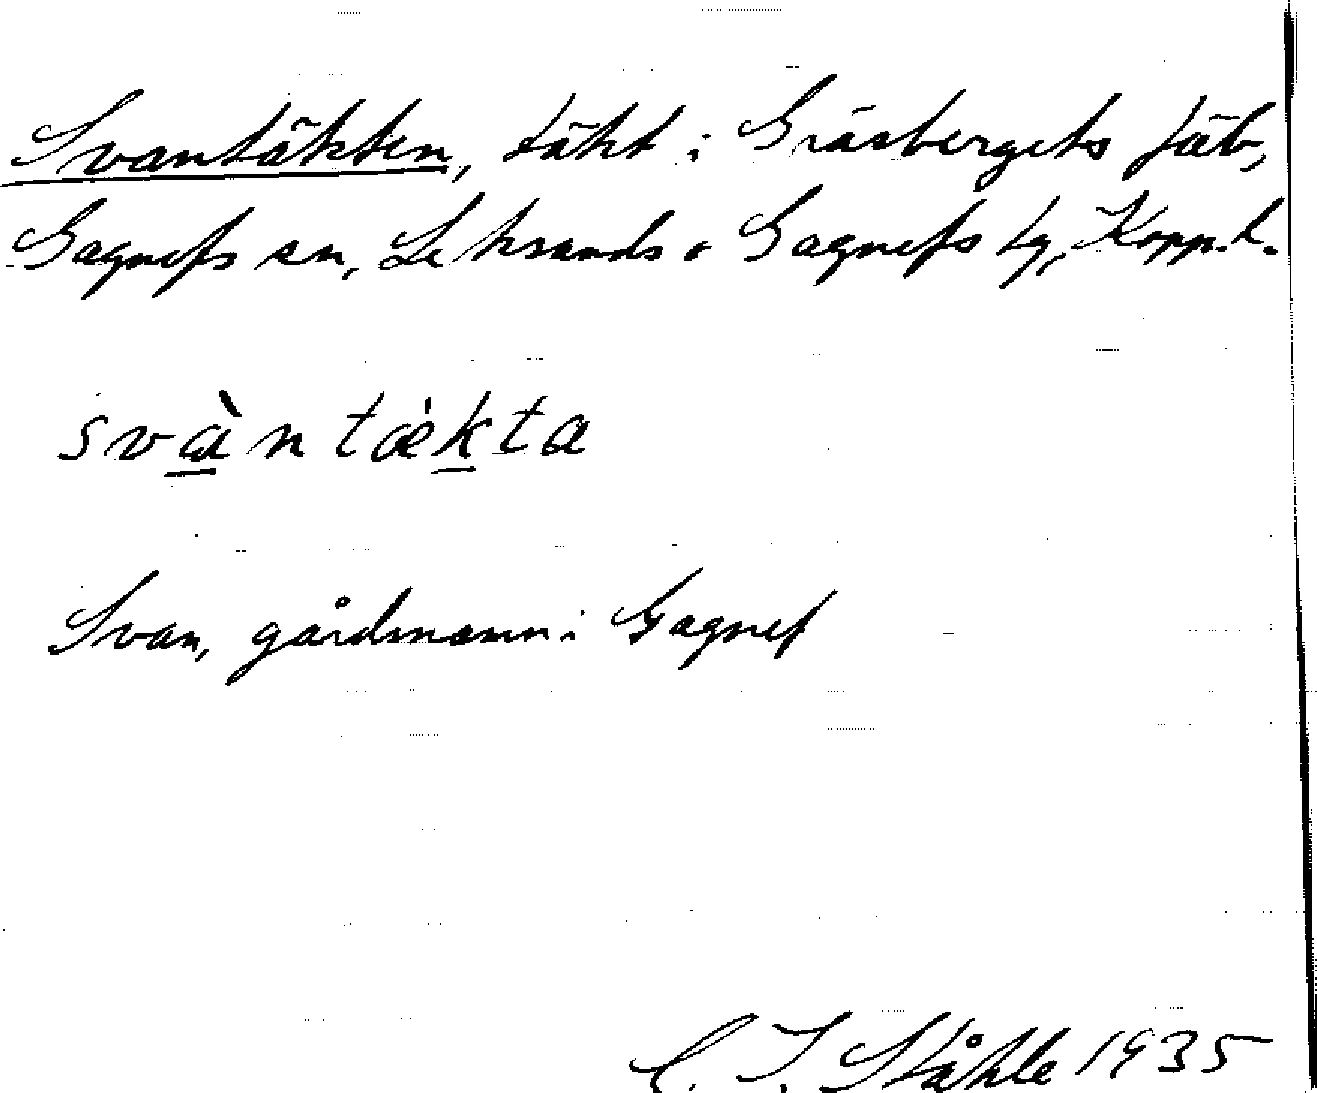 Svantäkten, täkt i Gräsbergets fäb,
Gagnefs sn, Leksands o Gagnefs tg, Kopp. l.
svàntækta
Svan, gårdsnamn i Gagnef
C. I. Ståhle 1935